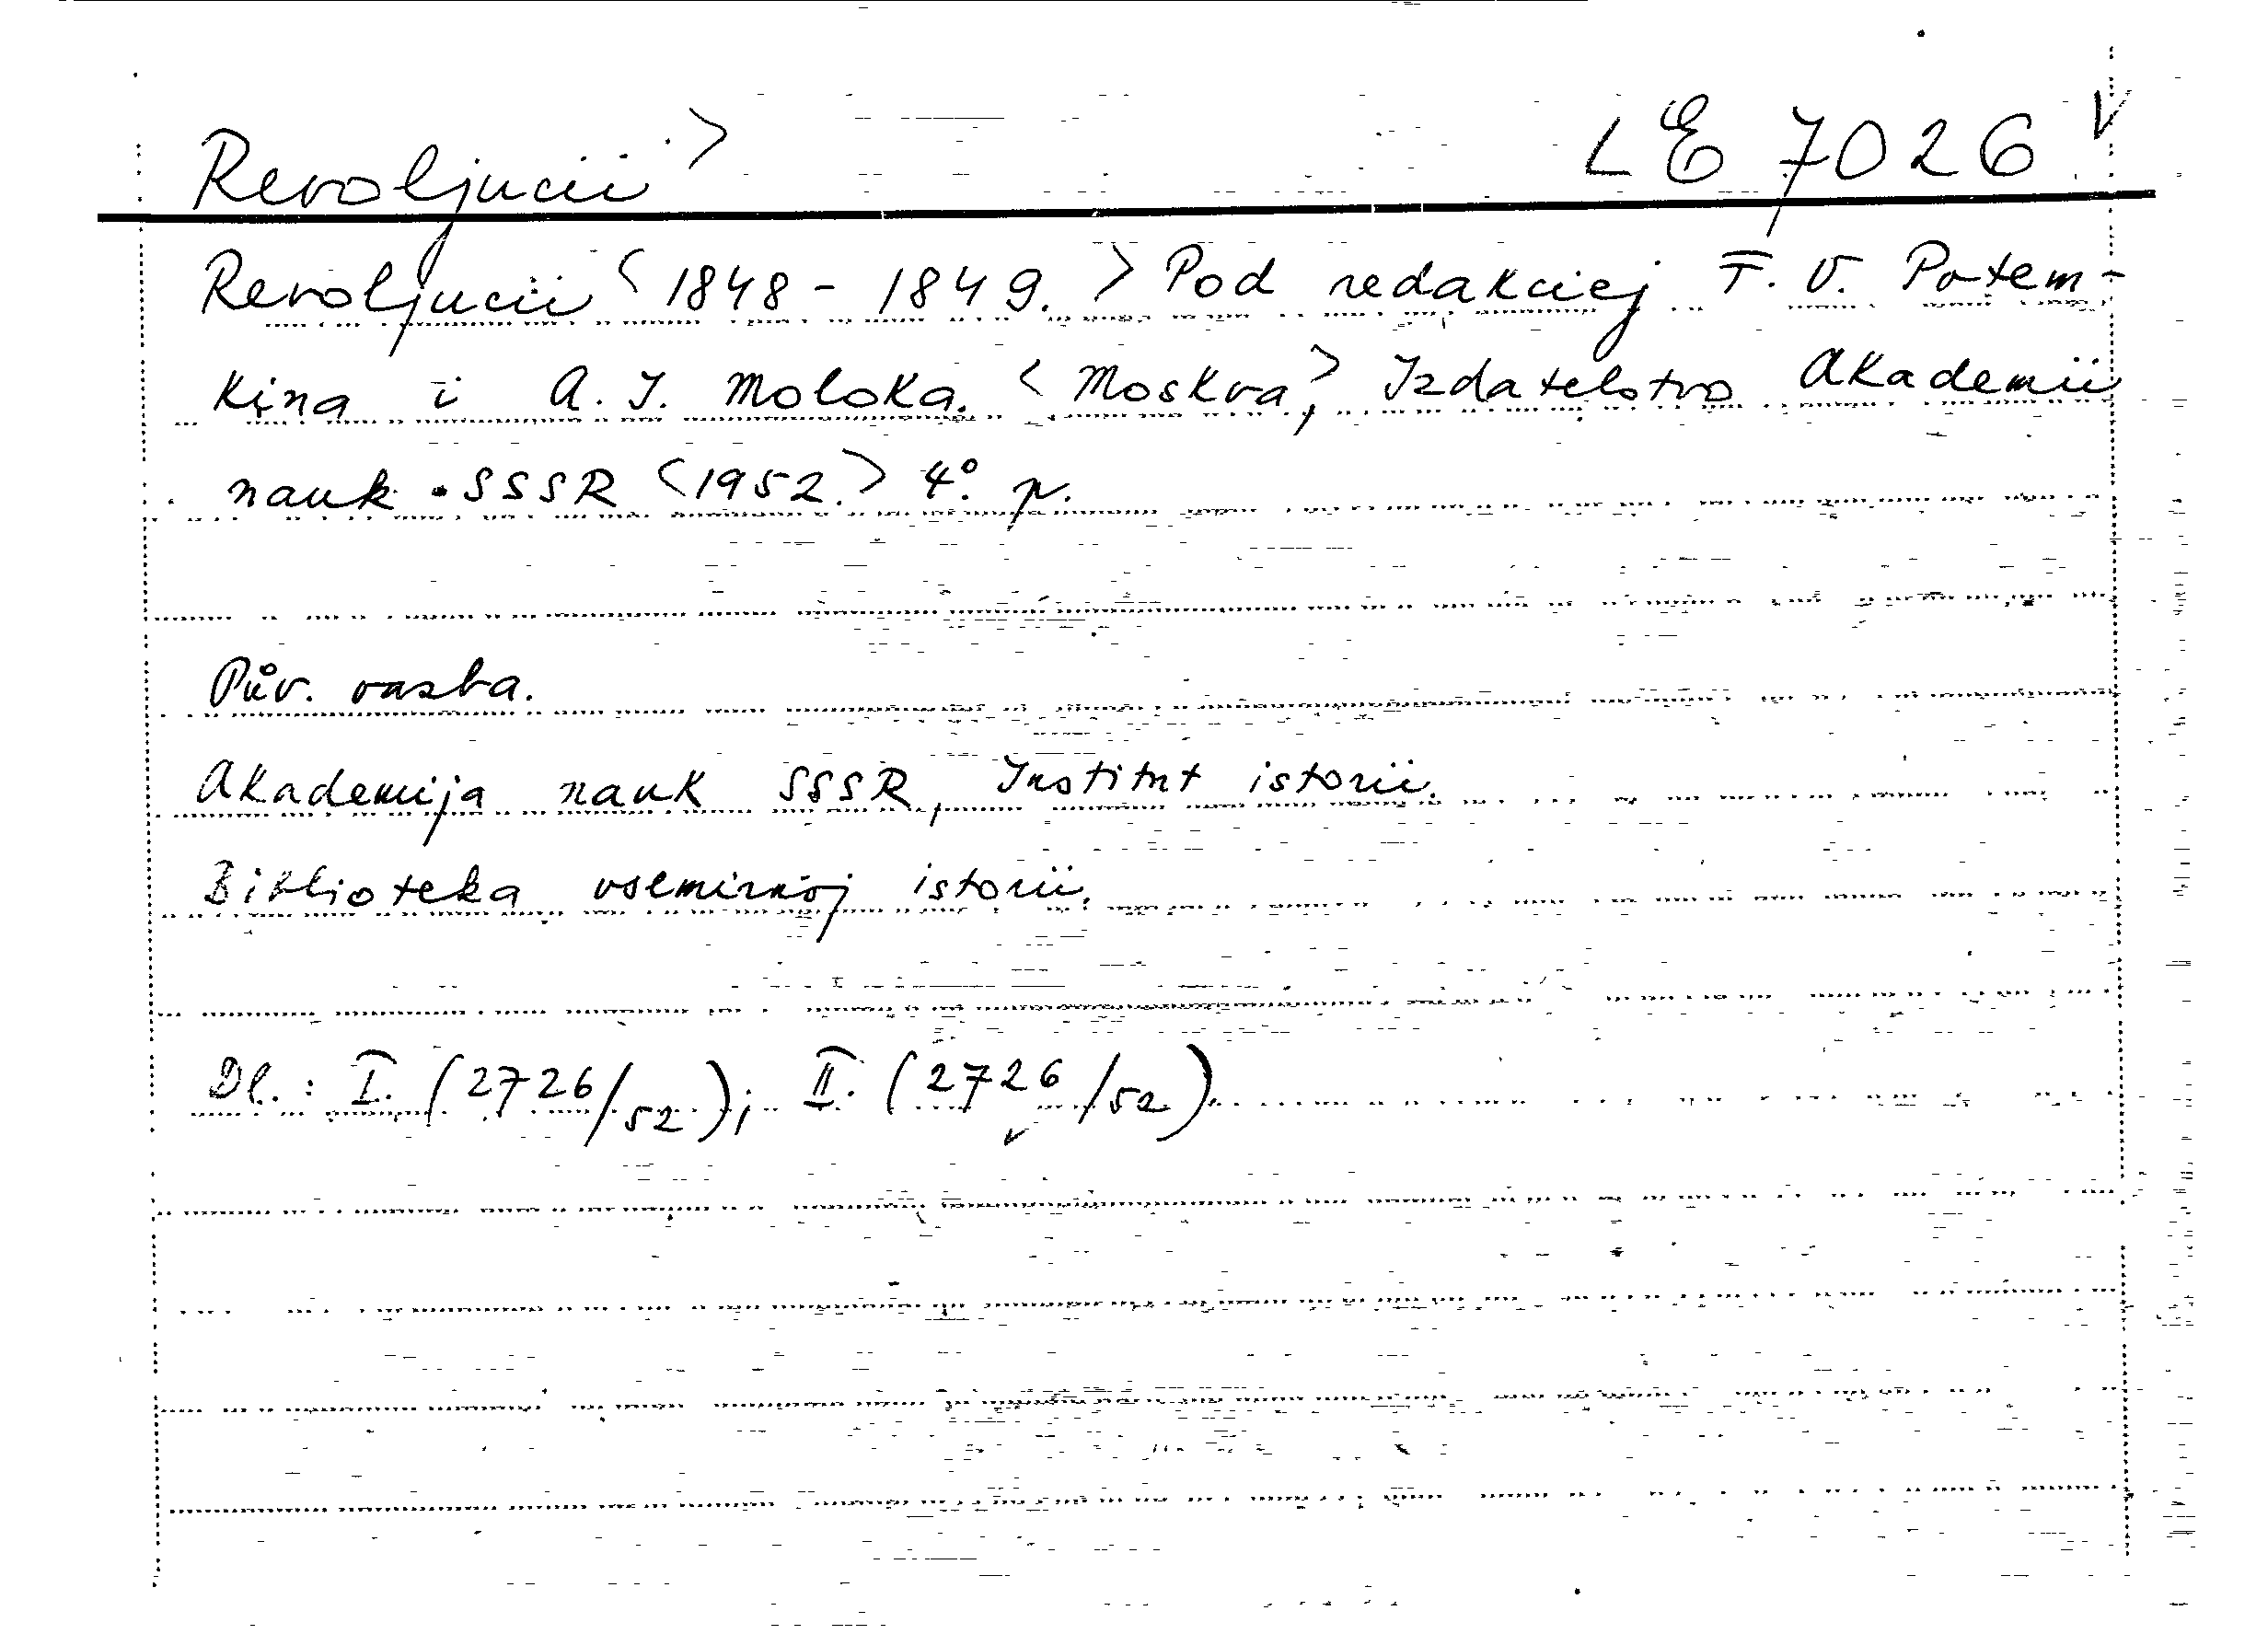 Revoljucii > LE 7026 V
Revoljucii <1848 - 1849.> Pod redakciej F. V. Potem-
kina i A. I. Moloka. <Moskva,> Izdatelstvo Akademii
nauk SSSR <1952.> 4°. p.
Pův. vazba.
Akademija nauk SSSR, Institut istorii.
Biblioteka vsemirnoj istorii.
Dl.: I. (2726/52); II. (2726/52).